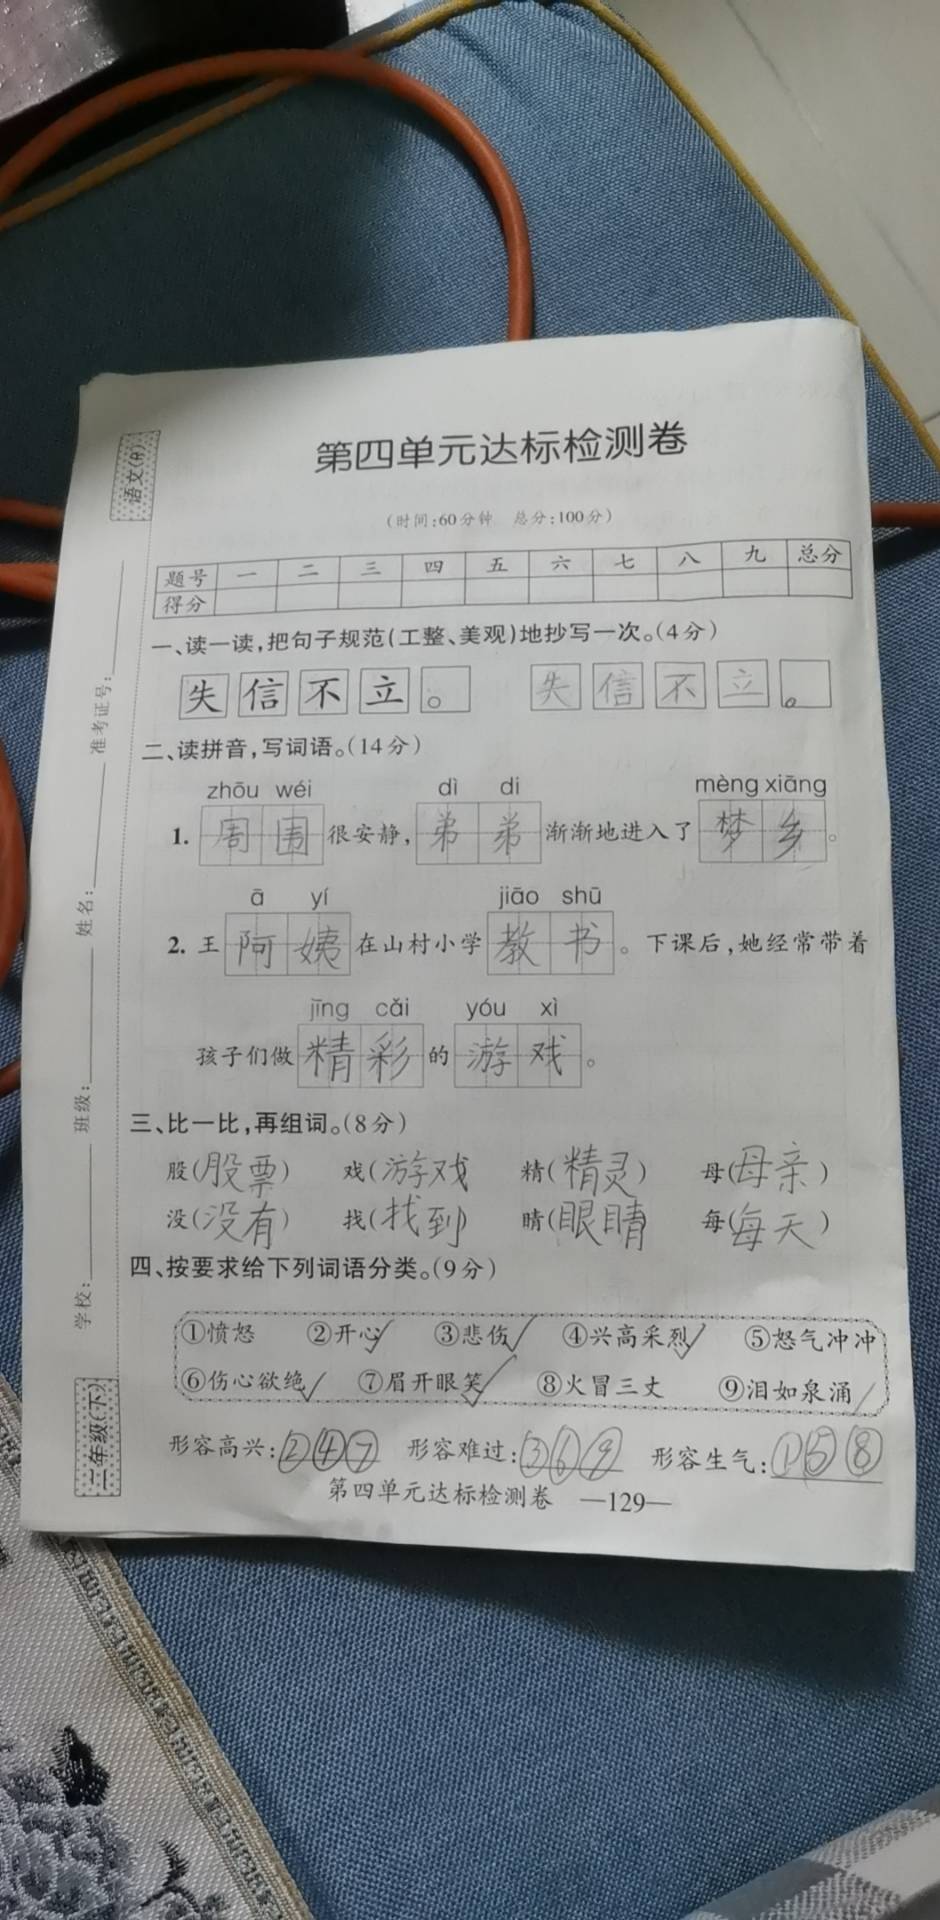 第四单元达标检测卷
(时间:60分钟 总分:100分)
题号 一 二 三 四 五 六 七 八 九 总分
得分
一、读一读,把句子规范(工整、美观)地抄写一次。(4分)
失信不立。 失信不立。
二、读拼音,写词语。(14分)
zhōu wéi dì di mèng xiāng
1. 周围很安静,弟弟渐渐地进入了梦乡。
ā yí jiāo shū
2. 王阿姨在山村小学教书。下课后,她经常带着
jīng cǎi yóu xì
孩子们做精彩的游戏。
三、比一比,再组词。(8分)
股(股票) 戏(游戏) 精(精灵) 母(母亲)
没(没有) 找(找到) 睛(眼睛) 每(每天)
四、按要求给下列词语分类。(9分)
①愤怒 ②开心 ③悲伤 ④兴高采烈 ⑤怒气冲冲
⑥伤心欲绝 ⑦眉开眼笑 ⑧火冒三丈 ⑨泪如泉涌
形容高兴:②④⑦ 形容难过:③⑥⑨ 形容生气:①⑤⑧
第四单元达标检测卷 —129—
语文(R)
准考证号:
姓名:
班级:
学校:
二年级(下)